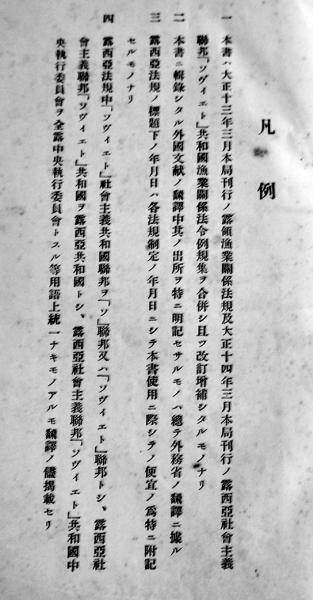 凡例
一 本書ハ大正十三年三月本局刊行ノ露領漁業關係法規及大正十四年三月本局刊行ノ露西亞社會主義
聯邦『ソヴィエト』共和國漁業關係法令例規集ヲ合併シ且ツ改訂增補シタルモノナリ
二 本書ニ輯錄シタル外國文献ノ飜譯中其ノ出所ヲ特ニ明記セサルモノハ總テ外務省ノ飜譯ニ據ル
三 露西亞法規ノ標題下ノ年月日ハ各法規制定ノ年月日ニシテ本書使用ニ際シテノ便宜ノ爲特ニ附記
セルモノナリ
四 露西亞法規中『ソヴィエト』社會主義共和國聯邦ヲ『ソ』聯邦又ハ『ソヴィエト』聯邦トシ、露西亞社
會主義聯邦『ソヴィエト』共和國ヲ露西亞共和國トシ、露西亞社會主義聯邦『ソヴィエト』共和國中
央執行委員會ヲ全露中央執行委員會トスル等用語上統一ナキモノアルモ飜譯ノ儘揭載セリ